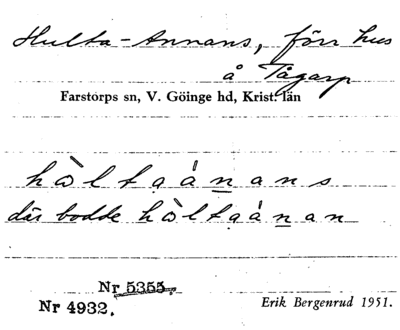 Hulta-Annans, förr hus
å Tågarp
Farstorps sn, V. Göinge hd, Krist. län
hòltaánans
där bodde hòltaánan
Nr 5355.
Nr 4932.
Erik Bergenrud 1951.